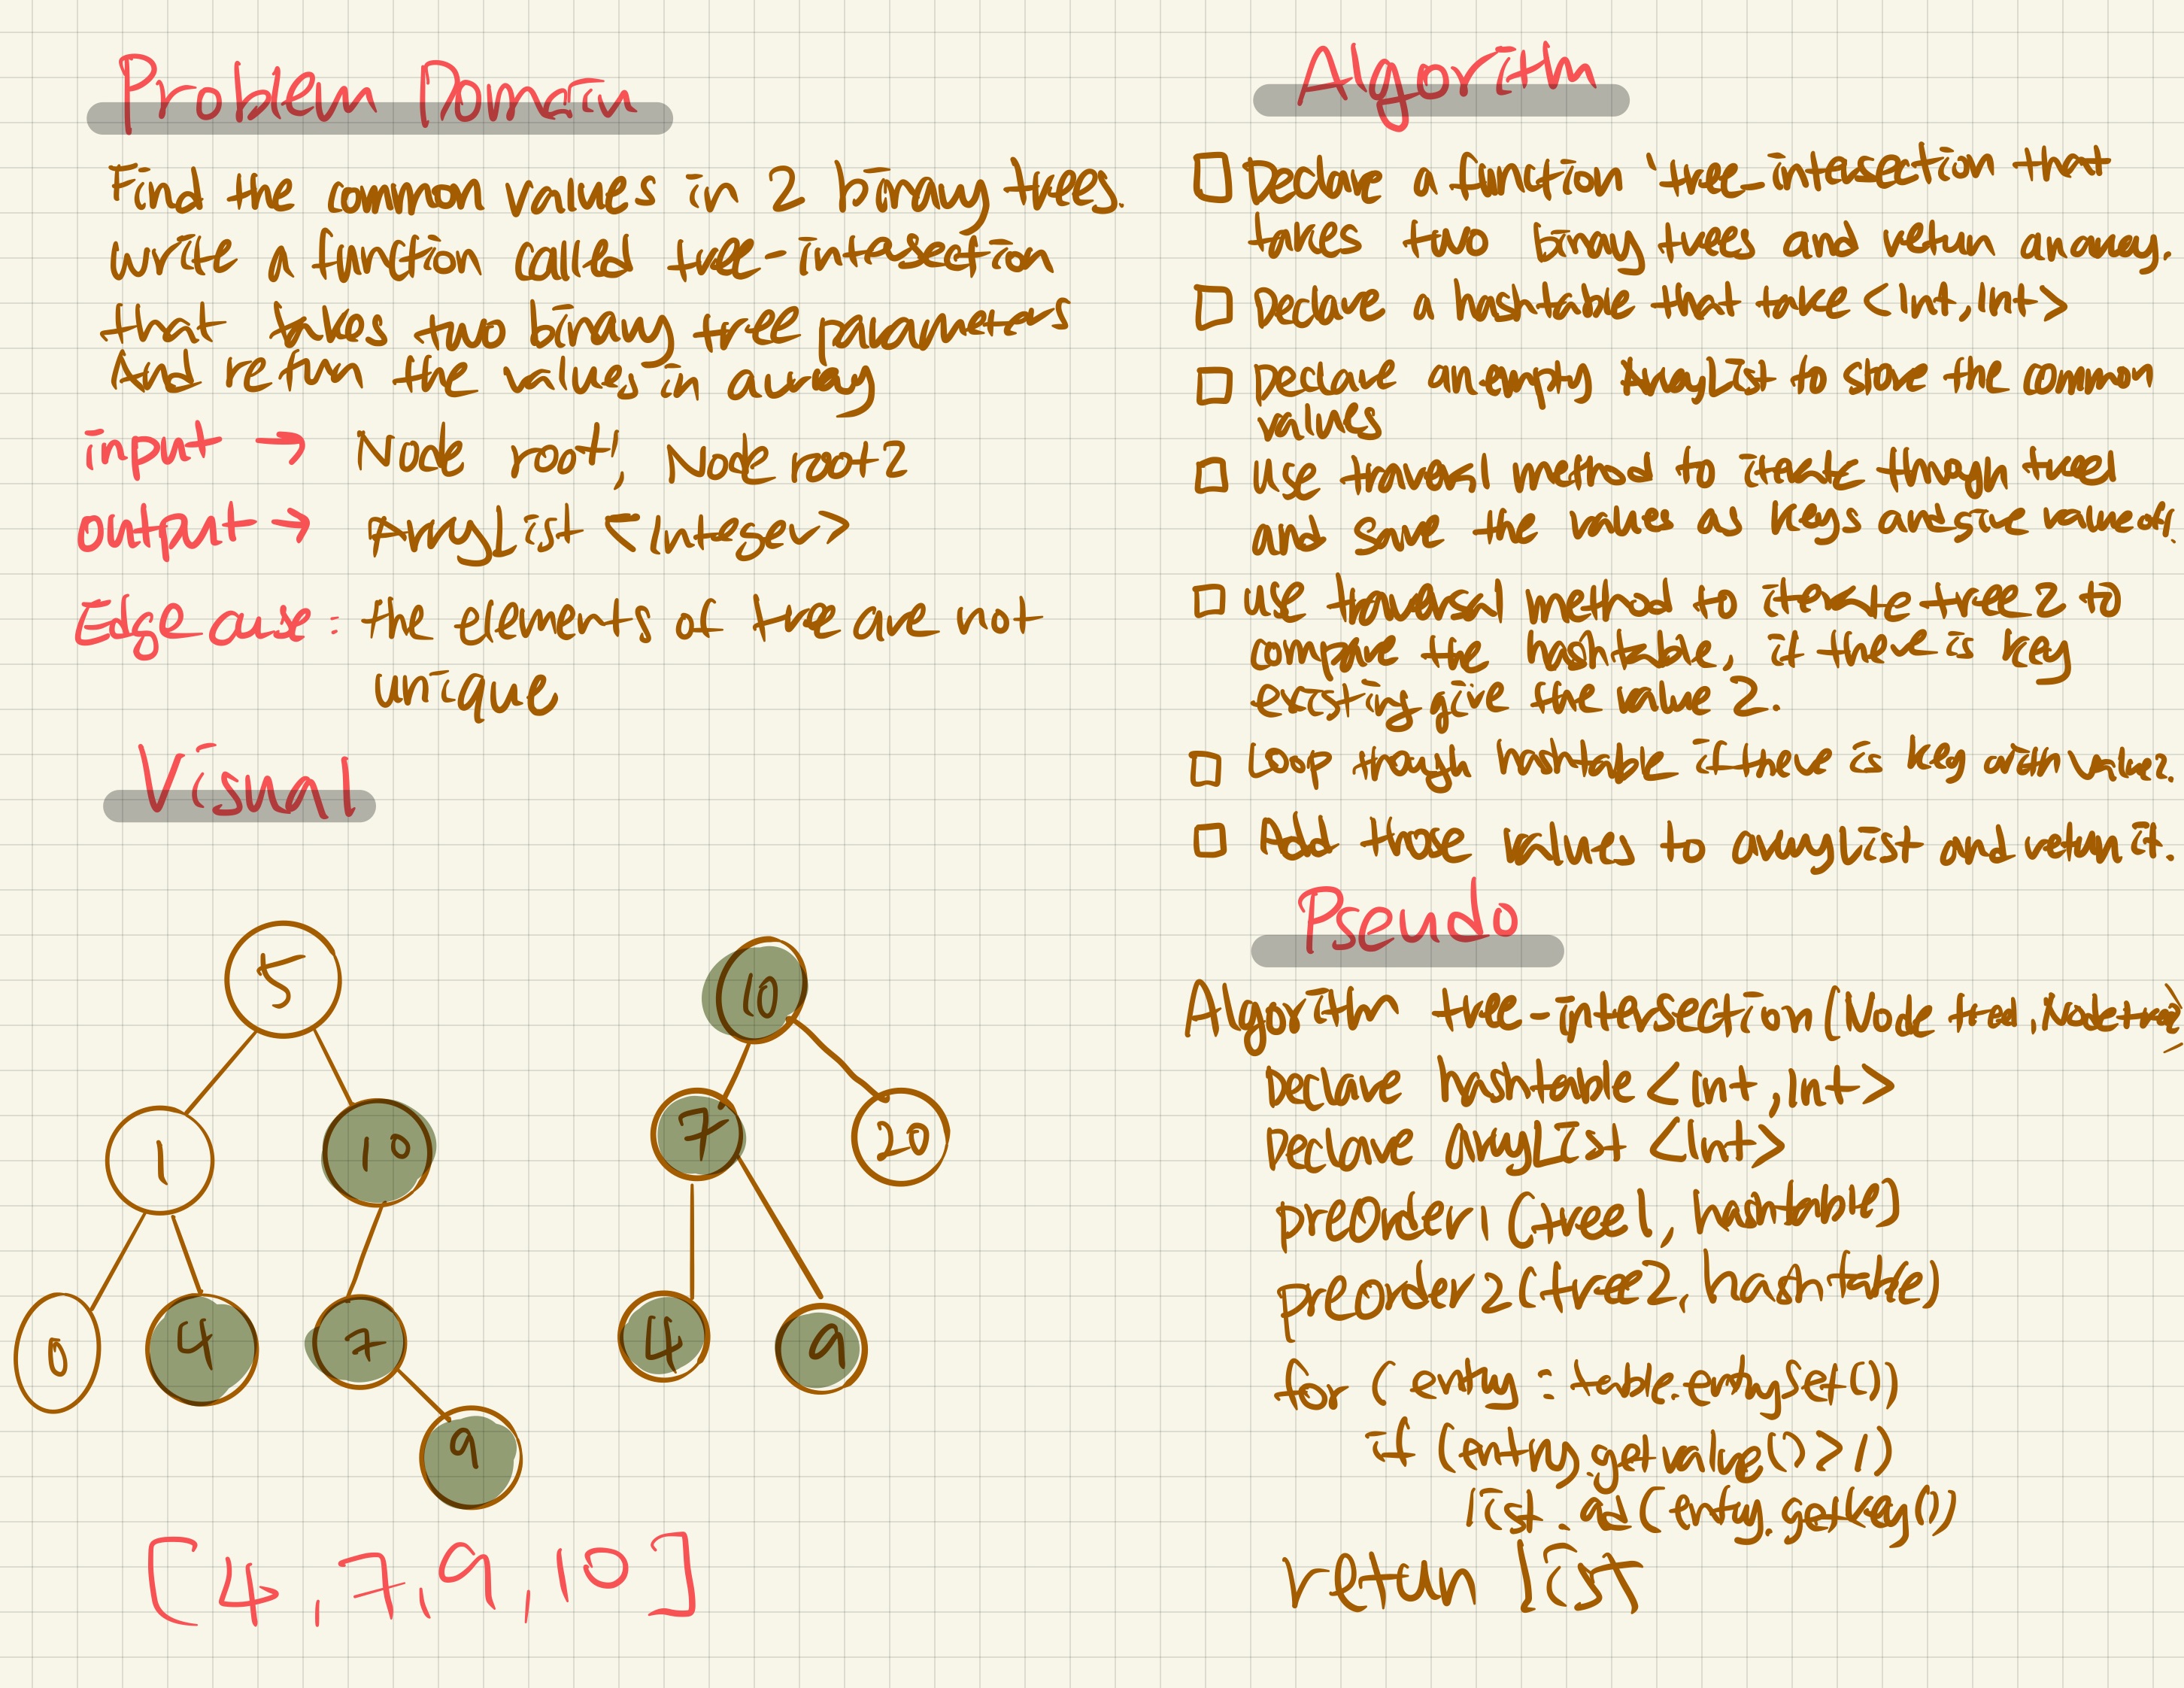 Problem Domain
Find the common values in 2 binary trees.
write a function called tree-intersection
that takes two binary tree parameters
And return the values in array
input → Node root1, Node root2
output → ArryList <Integer>
Edge case: the elements of tree are not
unique
Visual
5
1
10
0
4
7
9
10
7
20
4
9
[4,7,9,10]
Algorithm
Declare a function tree-intersection that
takes two binary trees and return an array.
Declare a hashtable that take <Int,Int>
Declare an empty ArrayList to store the common
values
use traversal method to iterate through tree1
and save the values as keys and give value of 1.
use traversal method to iterate tree2 to
compare the hashtable, if there is key
existing give the value 2.
Loop through hashtable if there is key with value 2.
Add those values to arrayList and return it.
Pseudo
Algorithm tree-intersection(Node tree1, Node tree2)
Declare hashtable <Int,Int>
Declare ArrayList <Int>
preOrder1(tree1, hashtable)
preorder2(tree2, hashtable)
for (entry : table.entrySet())
if (entry.getvalue()>1)
list.add(entry.getKey())
return list